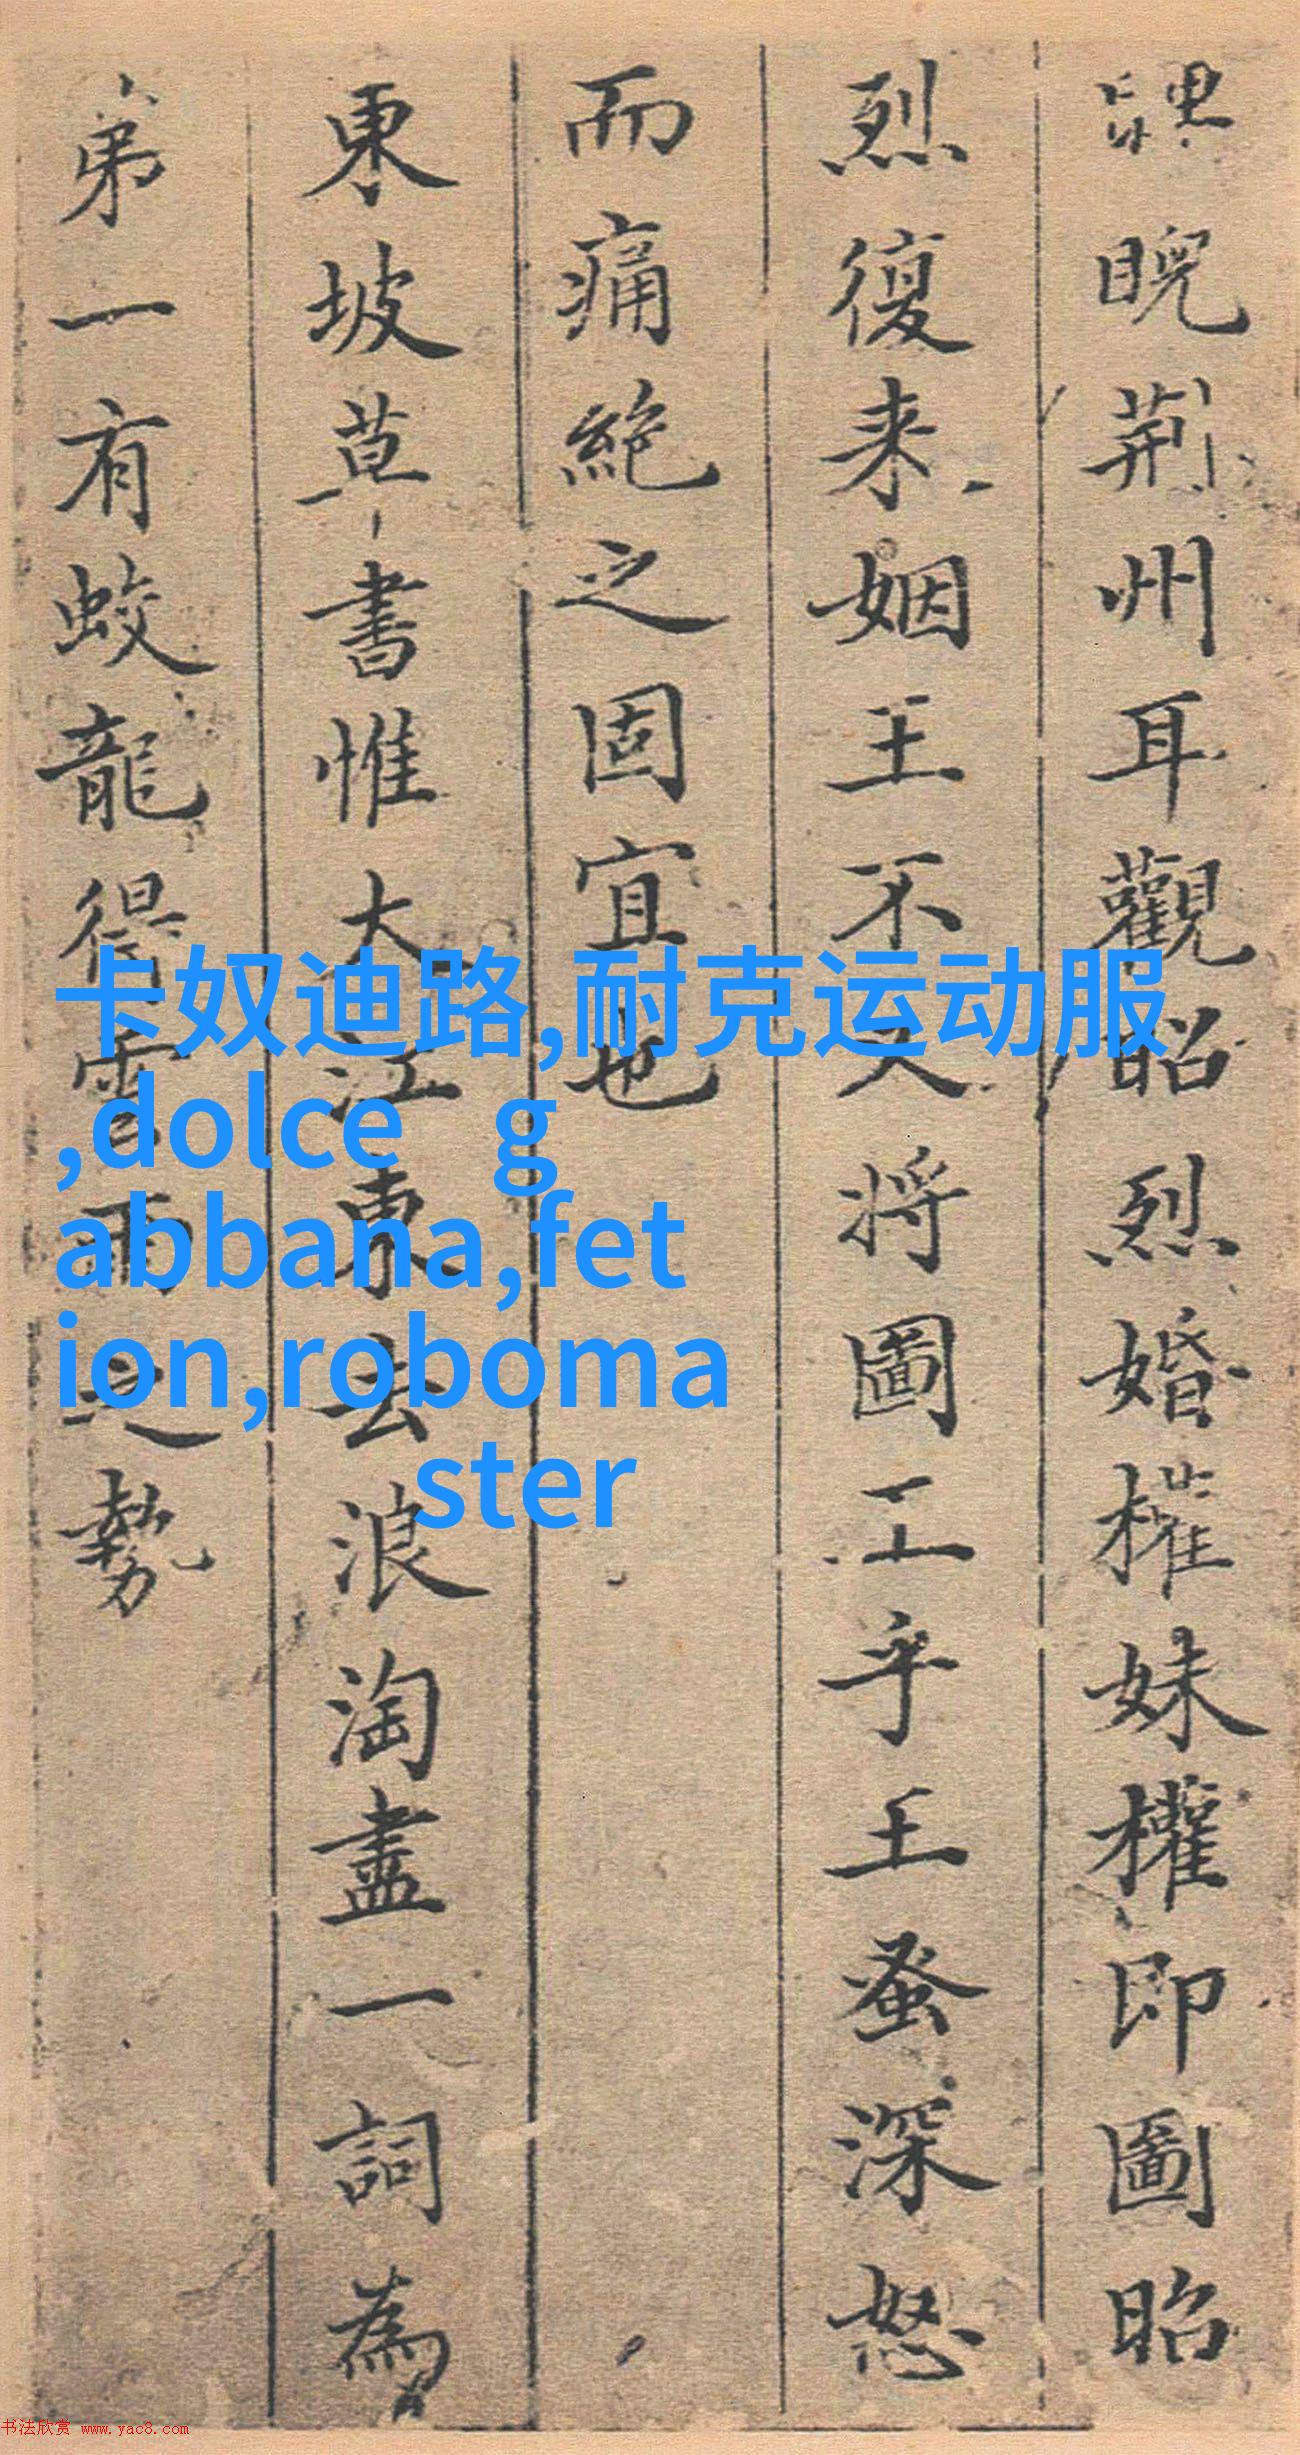 睨荊州耳觀昭烈婚權妹權即圖昭
烈復来姻王不又将圖工乎王蚤深怒
而痛絶之固宜也
東坡草書惟大江東去浪淘盡一詞為
弟一有蛟龍得雲雨之勢
卡奴迪路,耐克运动服
,dolce g
abbana,fet
ion,roboma
ster
书法欣赏 www.yac8.com